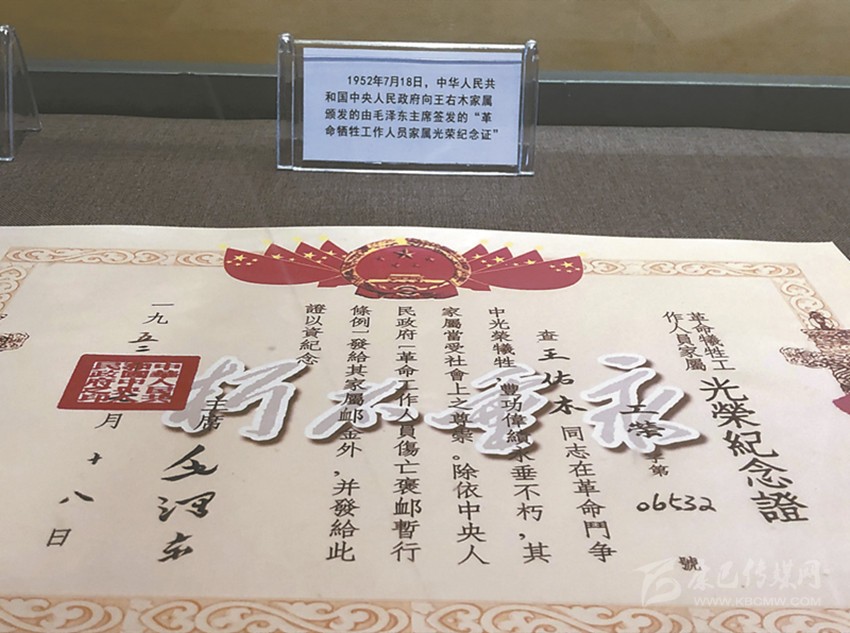 1952年7月18日，中华人民共
和国中央人民政府向王右木家属
颁发的由毛泽东主席签发的“革
命牺牲工作人员家属光荣纪念证”
革命犧牲工
作人員家屬
光榮紀念證
字第
06532
號
查王佑木同志在革命鬥爭
中光榮犧牲，豐功偉績永垂不朽，其
家屬當受社會上之尊崇。除依中央人
民政府《革命工作人員傷亡褒卹暫行
條例》發給其家屬卹金外，并發給此
證以資紀念
永垂不朽
主席 毛澤東
一九五二
月十八日
康巴传媒网
WWW.KBCMW.COM